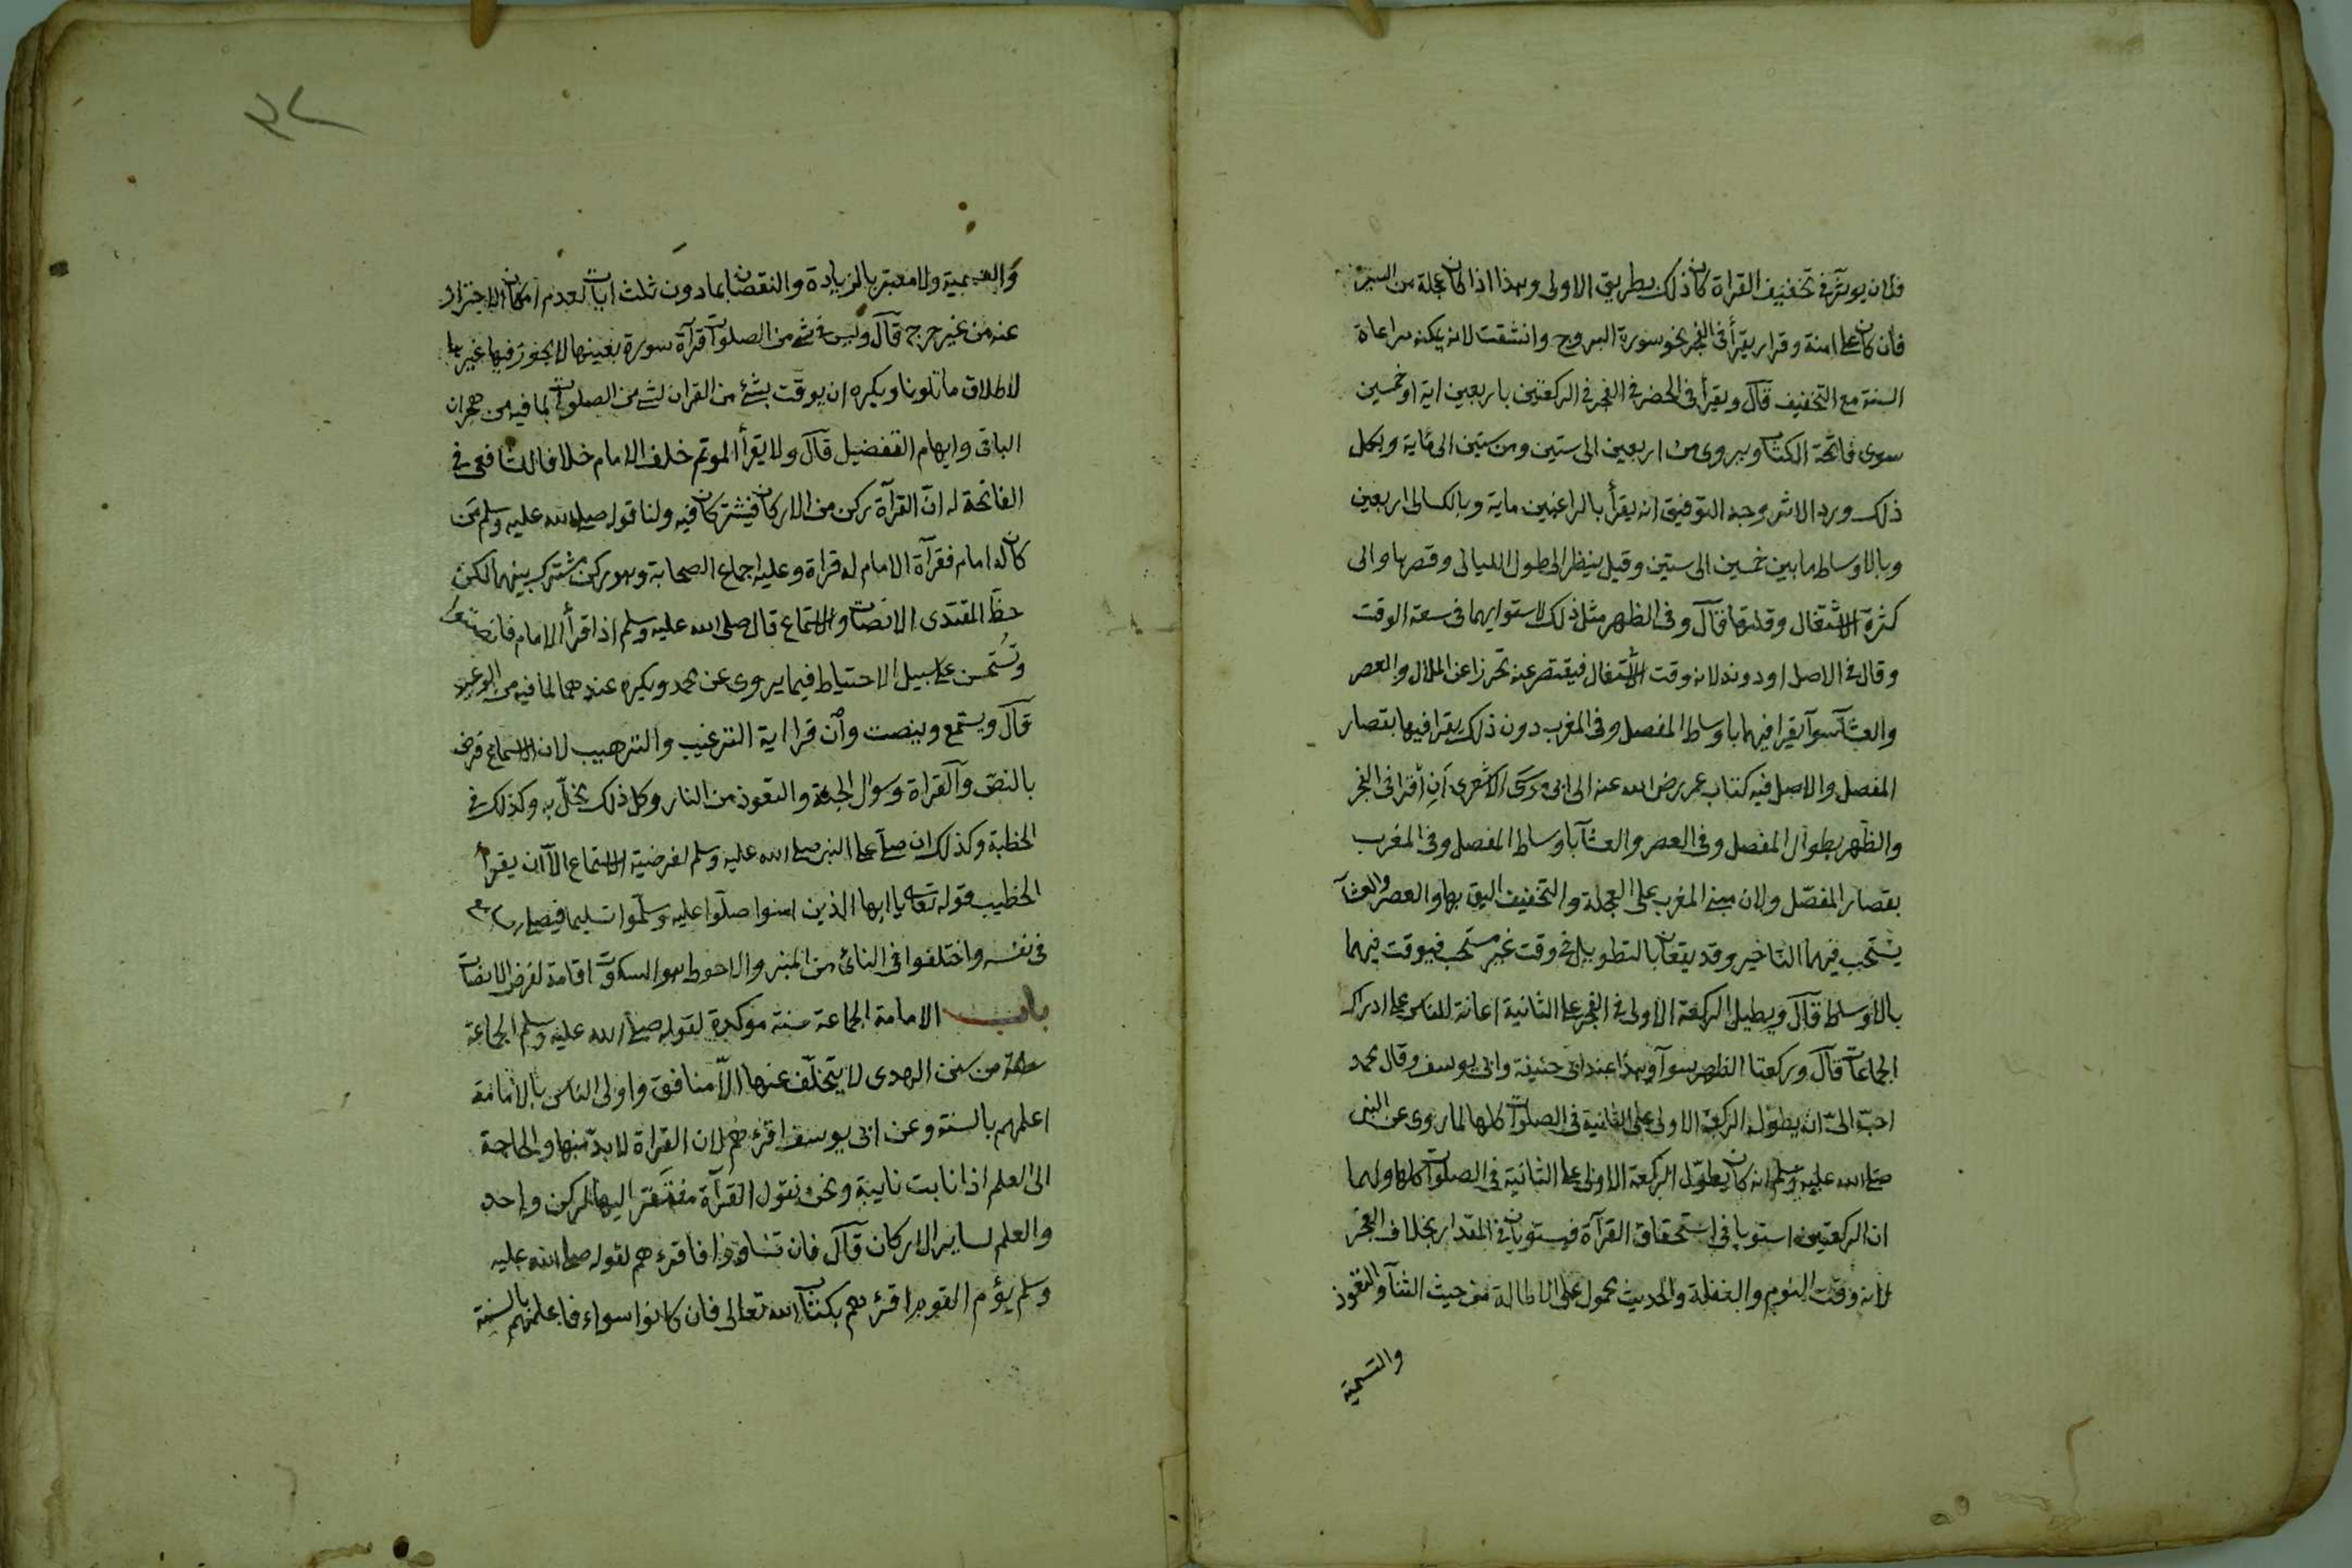 فلان يوثر في تخفيف القراة كان ذلك بطريق الاولى وهذا اذا كان على عجلة من السير
فان كان على امنة وقرار يقرأ في الفجر نحو سورة البروج وانشقت لانه يمكنه مراعاة
السنة مع التخفيف قال ويقرأ في الحضر في الفجر في الركعتين باربعين اية او خمسين
سوى فاتحة الكتاب ويروى من اربعين الى ستين ومن ستين الى ماية وبكل
ذلك ورد الاثر وجه التوفيق انه يقرأ بالراغبين ماية وبالكسالى اربعين
وبالاوساط ما بين خمسين الى ستين وقيل ينظر الى طول الليالى وقصرها والى
كثرة الاشتغال وقلتها قال وفى الظهر مثل ذلك لاستوايهما فى سعة الوقت
وقال فى الاصل او دونه لانه وقت الاشتغال فينتقص عنه تحرزا عن الملال والعصر
والعشآ سوآ يقرا فيهما باوساط المفصل وفى المغرب دون ذلك يقرا فيها بقصار
المفصل والاصل فيه كتاب عمر رضى الله عنه الى ابى موسى الاشعرى ان اقرا فى الفجر
والظهر بطوال المفصل وفى العصر والعشآ باوساط المفصل وفى المغرب
بقصار المفصل ولان مبنى المغرب على العجلة والتخفيف اليق بها والعصر والعشآ
يستحب فيهما التاخير وقد يقعان بالتطويل فى وقت غير مستحب فيوقت فيهما
بالاوساط قال ويطيل الركعة الاولى فى الفجر على الثانية اعانة للناس على ادراك
الجماعات قال وركعتا الظهر سوآ وهذا عند ابى حنيفة وابى يوسف وقال محمد
احب الىّ ان يطوّل الركعة الاولى على الثانية فى الصلوات كلها لما روى عن النبى
صلى الله عليه وسلم انه كان يطوّل الركعة الاولى على الثانية فى الصلوات كلها ولهما
ان الركعتين استويا فى استحقاق القرآة فيستويان فى المقدار بخلاف الفجر
لانه وقت النوم والغفلة والحديث محمول على الاطالة من حيث الثنآ والتعوذ
والتسمية
والتسمية ولا معتبر بالزيادة والنقصان بما دون ثلث ايات لعدم امكان الاحتراز
عنه من غير حرج قال وليس فى شئ من الصلوات قرآة سورة بعينها لا يجوز فيها غيرها
لاطلاق ما تلونا ويكره ان يوقت بشئ من القران لشئ من الصلوات لما فيه من هجران
الباقى وايهام التفضيل قال ولا يقرأ الموتم خلف الامام خلافا للشافعى فى
الفاتحة له ان القرآة ركن من الاركان فيشتركان فيه ولنا قوله صلى الله عليه وسلم من
كان له امام فقرآة الامام له قراة وعليه اجماع الصحابة وهو ركن مشترك بينهما لكن
حظّ المقتدى الانصات والاستماع قال صلى الله عليه وسلم اذا قرأ الامام فانصتوا
وتستحسن على سبيل الاحتياط فيما يروى عن محمد ويكره عندهما لما فيه من الوعيد
قال ويستمع وينصت وان قرا اية الترغيب والترهيب لان الاستماع فرض
بالنصّ والقراة وسوال الجنة والتعوذ من النار وكل ذلك يخلّ به وكذلك فى
الخطبة وكذلك ان صلى على النبى صلى الله عليه وسلم لفرضية الاستماع الا ان يقرأ
الخطيب قوله تعالى يا ايها الذين امنوا صلّوا عليه وسلّموا تسليما فيصلى السامع
فى نفسه واختلفوا فى النائى من المنبر والاحوط هو السكوت اقامة لفرض الانصات
باب الامامة الجماعة سنة موكدة لقوله صلى الله عليه وسلم الجماعة
سنة من سنن الهدى لا يتخلّف عنها الّا منافق واولى الناس بالامامة
اعلمهم بالسنة وعن ابى يوسف اقرءهم لان القراة لا بدّ منها والحاجة
الى العلم اذا نابت نايبة ونحن نقول القرآة مفتقر اليها لركن واحد
والعلم لساير الاركان قال فان تساووا فاقرءهم لقوله صلى الله عليه
وسلم يؤم القوم اقرءهم بكتاب الله تعالى فان كانوا سواء فاعلمهم بالسنة